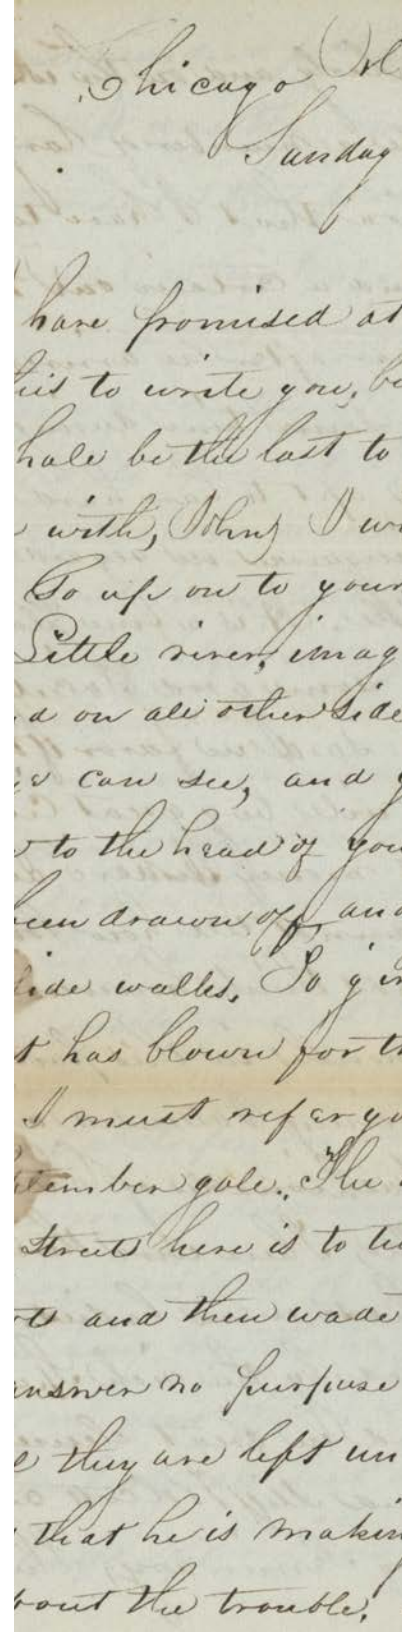 Chicago Ill
Sunday
have promised at
this to write you, b
hale be the last to
with, John, I w
Go up on to your
Little river, imag
d on all other side
can see, and y
to the head of you
been drawn off, and
side walks. To giv
t has blown for th
I must refer yo
tember gale. The
Streets here is to tu
ts and then wade
answer no purpose
e they are left un
that he is makin
bout the trouble.